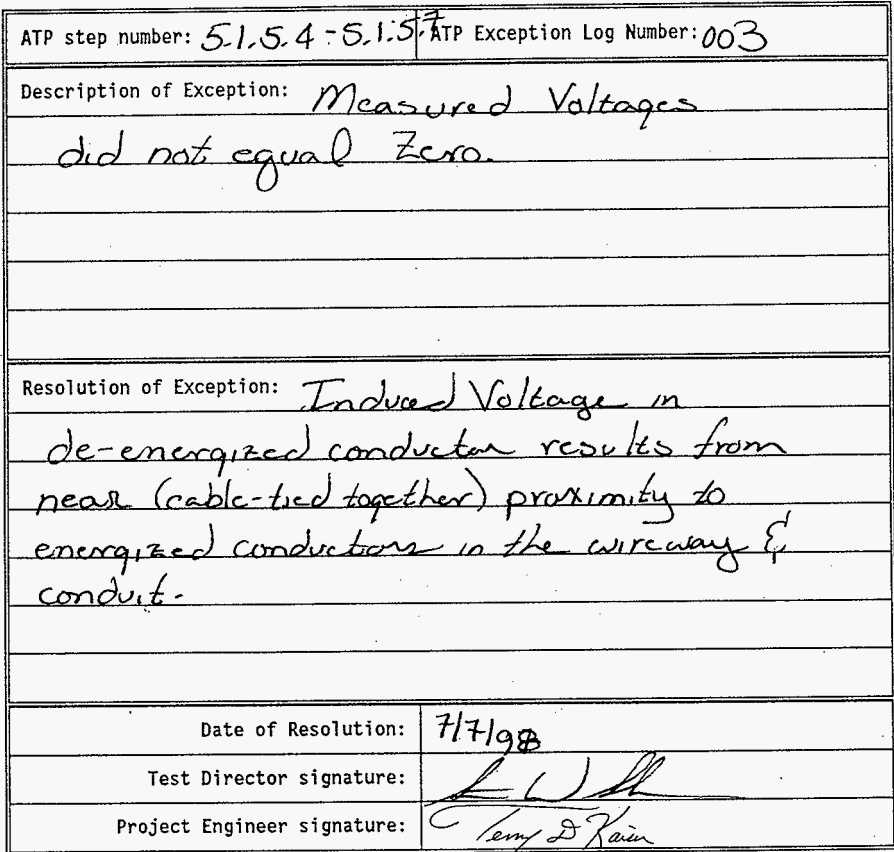 ATP step number: 5.1.5.4 - 5.1.5.7 ATP Exception Log Number: 003
Description of Exception: Measured Voltages
did not equal Zero.
Resolution of Exception: Induced Voltage in
de-energized conductor results from
near (cable-tied together) proximity to
energized conductors in the wireway &
conduit.
Date of Resolution: 7/7/98
Test Director signature:
Project Engineer signature: Terry D